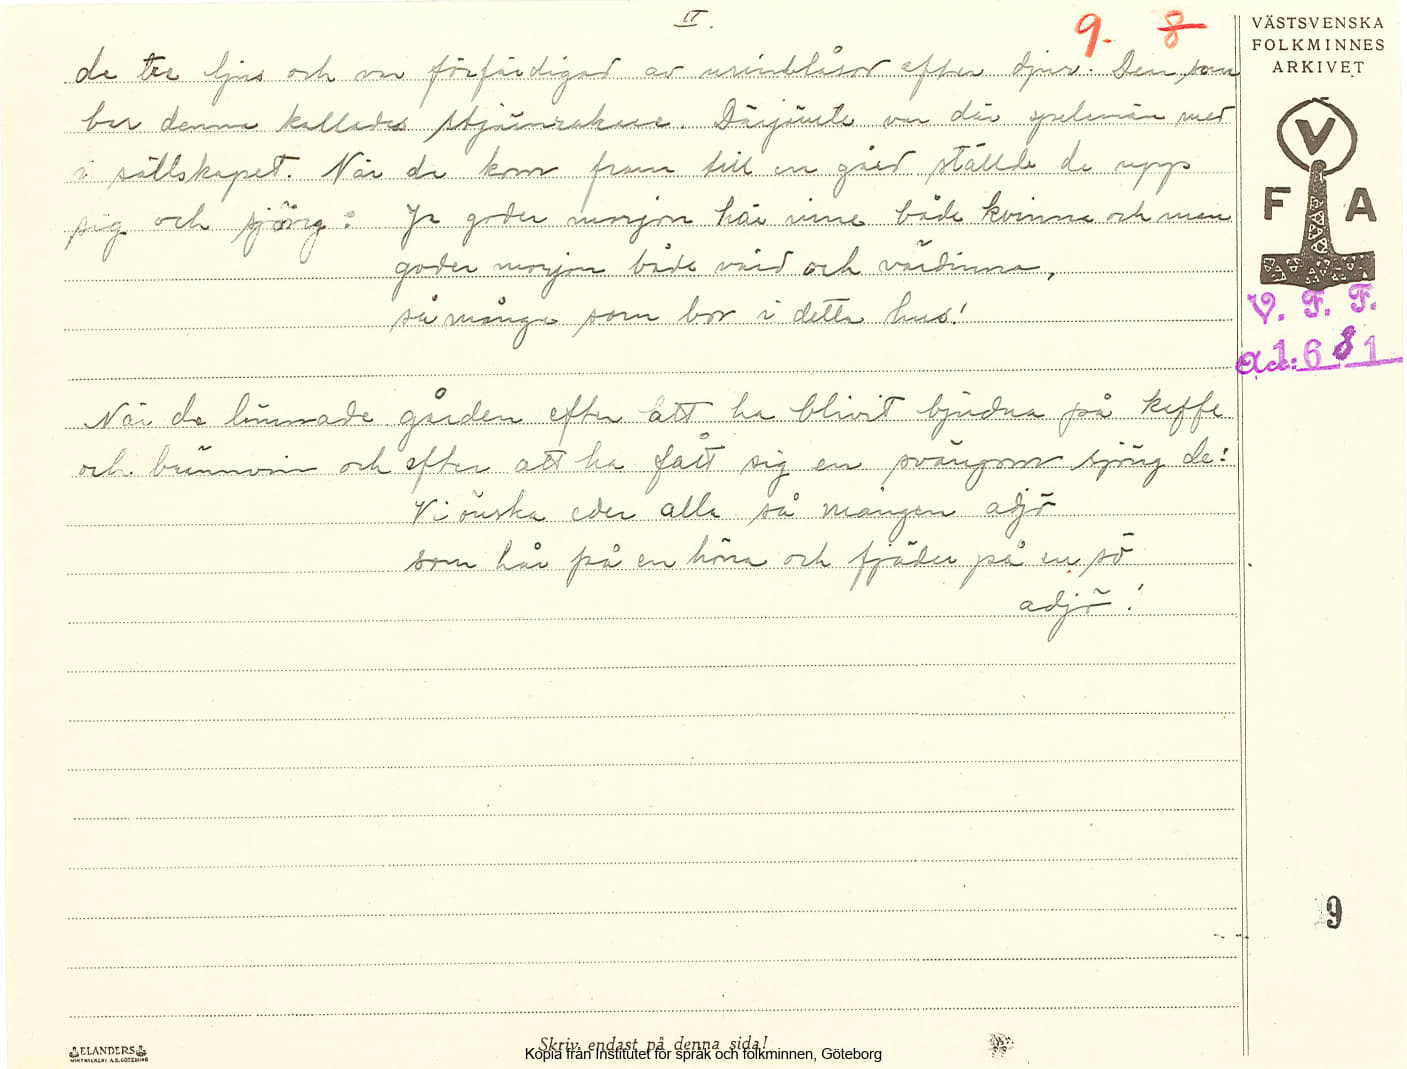 II.
9. 8
VÄSTSVENSKA
FOLKMINNES
ARKIVET
de tre ljus och var förfärdigad av urinblåsor efter djur. Den som
bar denna kallades stjärnrakare. Därjämte var där spelmän med
i sällskapet. När de kom fram till en gård ställde de upp
sig och sjöng: Ja goder morjon här inne både kvinna och man
goder morjon både värd och värdinna,
så många som bor i detta hus!
När de lämnade gården efter att ha blivit bjudna på kaffe
och brännvin och efter att ha fått sig en svängom sjöng de:
Vi önska eder alla så mången adjö
som hår på en höna och fjäder på en sö
adjö!
V
F A
V. F. F.
Acc: 1681
9
ELANDERS
Skriv endast på denna sida!
Kopia från Institutet för språk och folkminnen, Göteborg